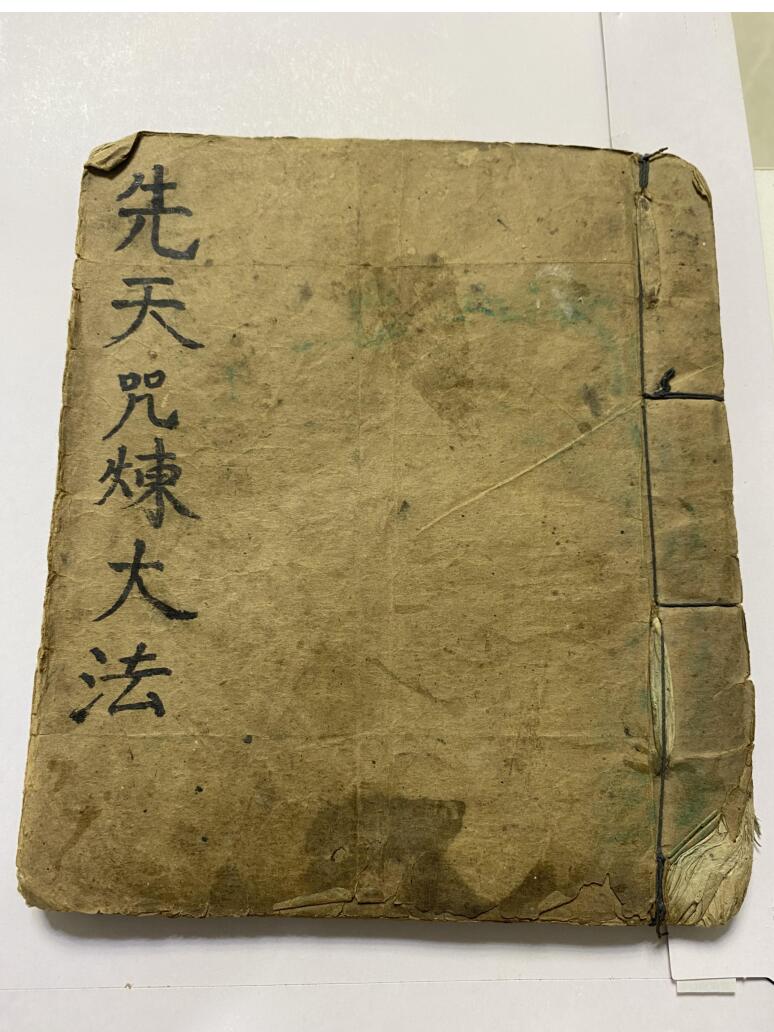 先天咒煉大法